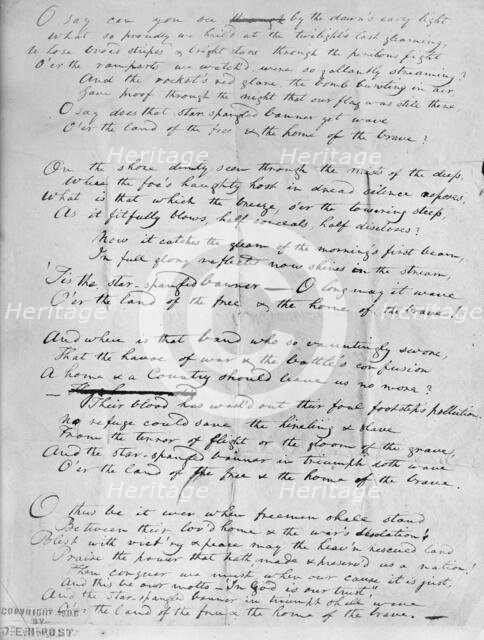 O say can you see through by the dawn's early light
What so proudly we hail'd at the twilight's last gleaming,
Whose broad stripes & bright stars through the perilous fight
O'er the ramparts we watch'd, were so gallantly streaming?
And the rocket's red glare, the bomb bursting in air,
Gave proof through the night that our flag was still there,
O say does that star-spangled banner yet wave
O'er the land of the free & the home of the brave?
On the shore dimly seen through the mists of the deep,
Where the foe's haughty host in dread silence reposes,
What is that which the breeze, o'er the towering steep,
As it fitfully blows, half conceals, half discloses?
Now it catches the gleam of the morning's first beam,
In full glory reflected now shines in the stream,
'Tis the star-spangled banner — O long may it wave
O'er the land of the free & the home of the brave!
And where is that band who so vauntingly swore,
That the havoc of war & the battle's confusion
A home & a Country should leave us no more?
—
Their blood has wash'd out their foul footstep's pollution.
No refuge could save the hireling & slave
From the terror of flight or the gloom of the grave,
And the star-spangled banner in triumph doth wave
O'er the land of the free & the home of the brave.
O thus be it ever when freemen shall stand
Between their lov'd home & the war's desolation!
Blest with vict'ry & peace may the heav'n rescued land
Praise the power that hath made & preserv'd us a nation!
Then conquer we must, when our cause it is just,
And this be our motto — "In God is our trust,"
And the star-spangled banner in triumph shall wave
O'er the land of the free & the home of the brave. —
COPYRIGHT 1908
BY
J.E.H. POST
Heritage
Heritage
Heritage
Heritage
Heritage
Heritage
Heritage
Heritage
Heritage